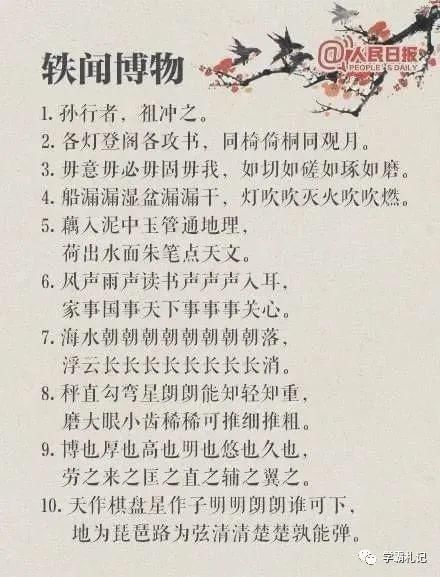 @人民日报
PEOPLE'S DAILY
轶闻博物
1. 孙行者，祖冲之。
2. 各灯登阁各攻书，同椅倚桐同观月。
3. 毋意毋必毋固毋我，如切如磋如琢如磨。
4. 船漏漏湿盆漏漏干，灯吹吹灭火吹吹燃。
5. 藕入泥中玉管通地理，
荷出水面朱笔点天文。
6. 风声雨声读书声声声入耳，
家事国事天下事事事关心。
7. 海水朝朝朝朝朝朝朝朝落，
浮云长长长长长长长长消。
8. 秤直勾弯星朗朗能知轻知重，
磨大眼小齿稀稀可推细推粗。
9. 博也厚也高也明也悠也久也，
劳之来之匡之直之辅之翼之。
10. 天作棋盘星作子明明朗朗谁可下，
地为琵琶路为弦清清楚楚孰能弹。
学霸札记